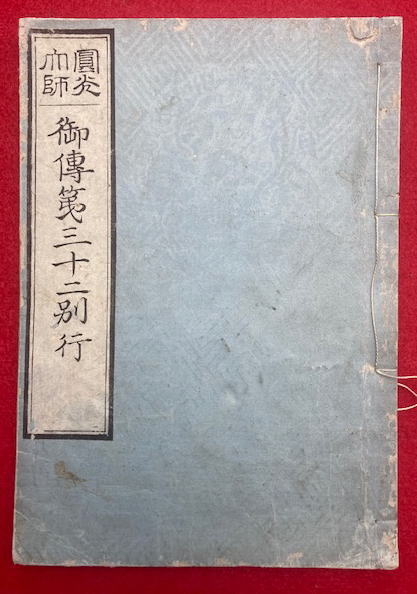 圓光
大師
御傳第三十二別行